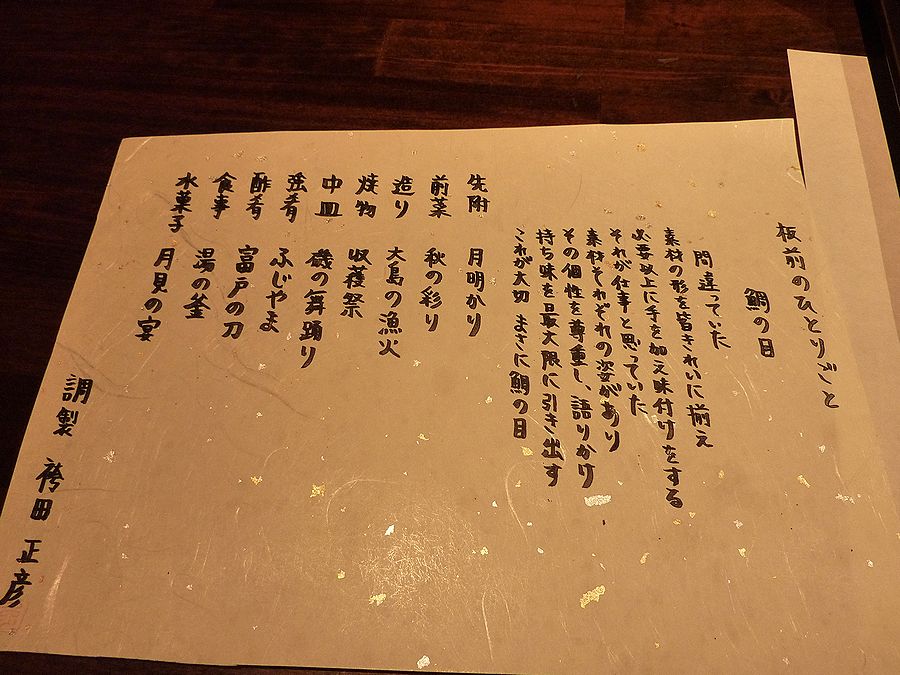 板前のひとりごと
鯛の日
間違っていた
素材の形を皆きれいに揃え
必要以上に手を加え味付けをする
それが仕事と思っていた
素材それぞれの姿があり
その個性を尊重し、語りかけ
持ち味を最大限に引き出す
これが大切 まさに鯛の日
先附 月明かり
前菜 秋の彩り
造り 大島の漁火
焼物 収穫祭
中皿 磯の舞踊り
岳肴 ふじやま
酢肴 富戸の刀
食事 湯の釜
水菓子 月見の宴
調製 袴田 正彦